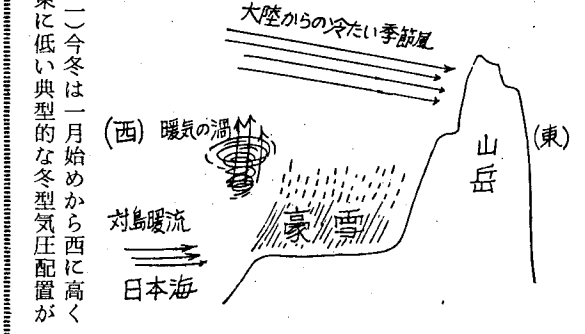 大陸からの冷たい季節風
(西)
暖気の渦
(東)
山岳
対島暖流
豪雪
日本海
一)今冬は一月始めから西に高く
東に低い典型的な冬型気圧配置が